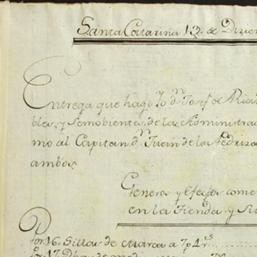 Santa Catarina 13 de Dizien
Entrega que hago Yo Dn Josef de
bles, y Semobientes de la Administrac
mo al Capitan Dn Juan de la Pedriza
ambos
Generos y efectos come
en la Tienda y
Por 16 Sillas de Marca a 7 p 4 rs